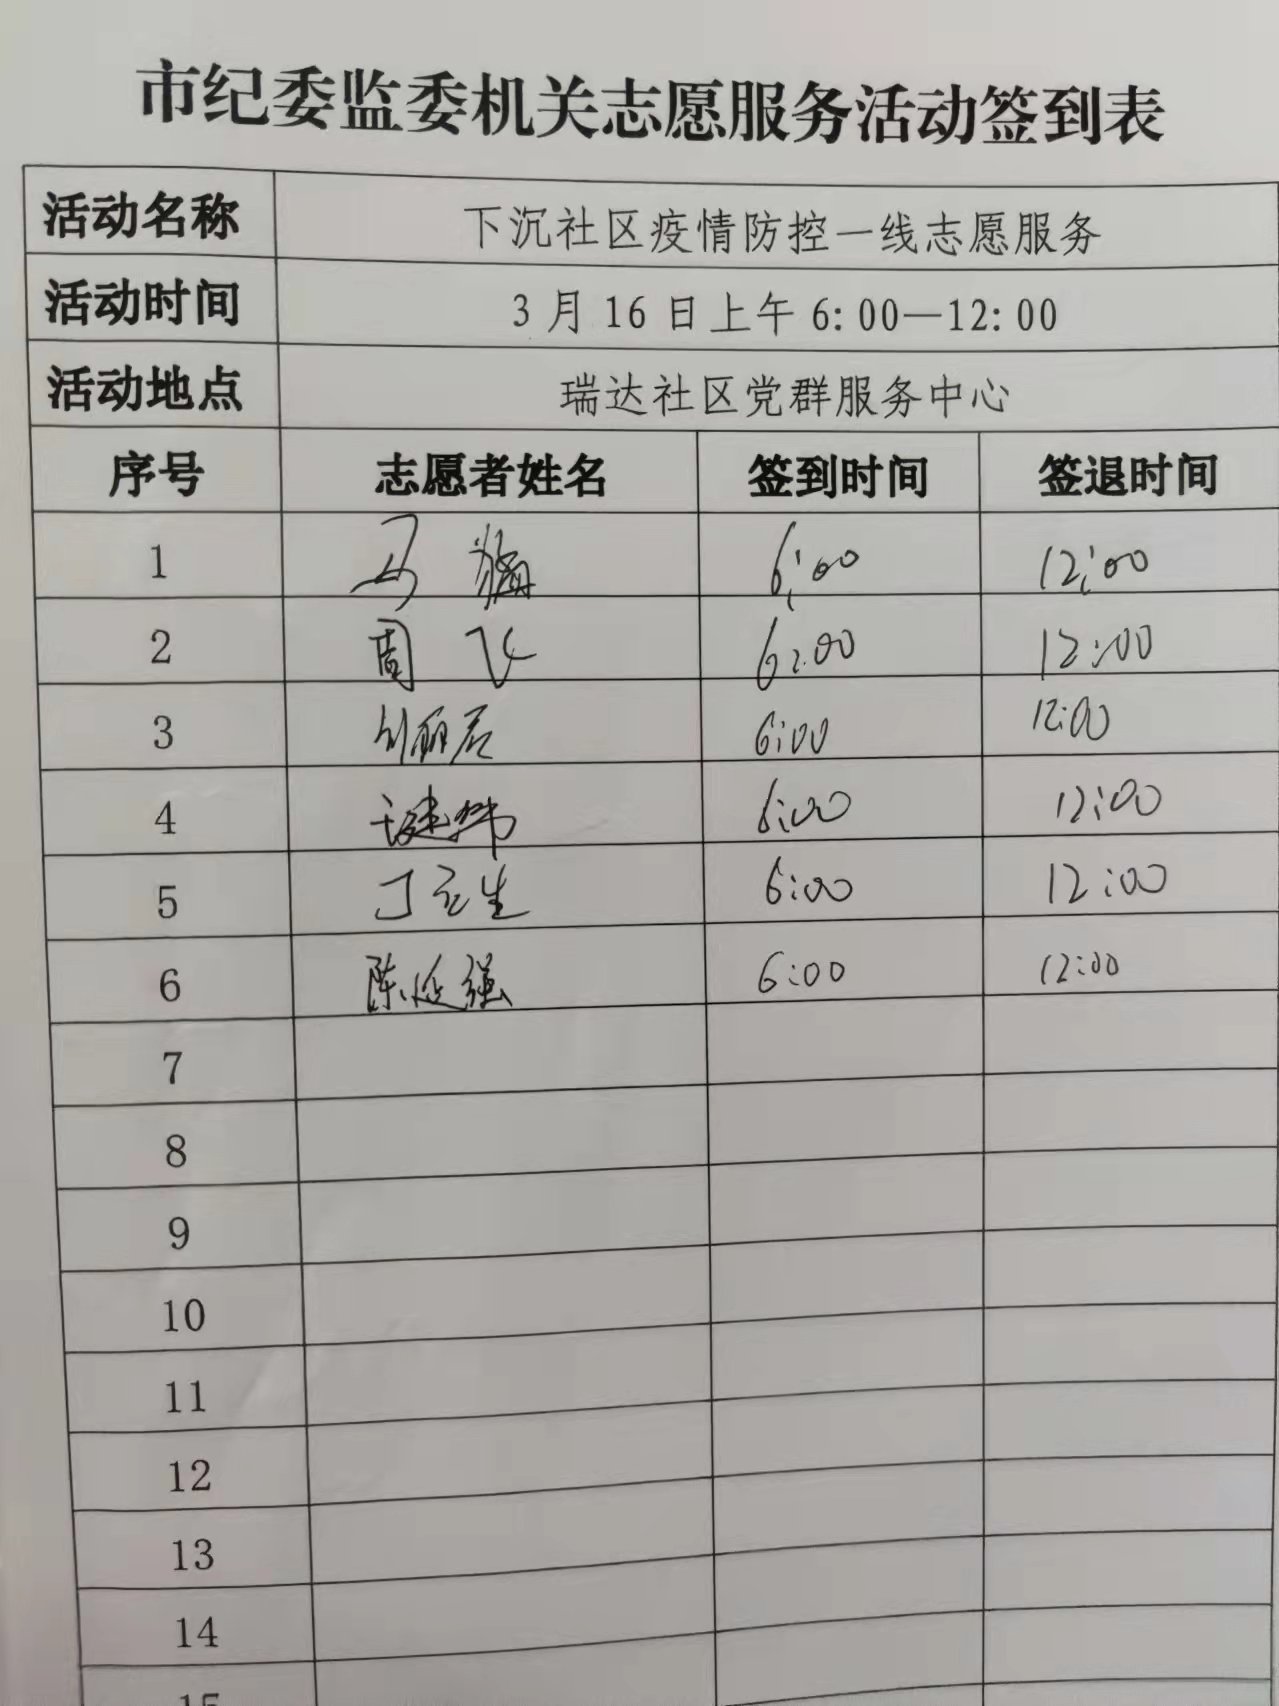 市纪委监委机关志愿服务活动签到表
活动名称 下沉社区疫情防控一线志愿服务
活动时间 3月16日上午6:00—12:00
活动地点 瑞达社区党群服务中心
序号 志愿者姓名 签到时间 签退时间
1 马 6:00 12:00
2 周飞 6:00 12:00
3 刘丽君 6:00 12:00
4 6:00 12:00
5 丁立生 6:00 12:00
6 陈延强 6:00 12:00
7
8
9
10
11
12
13
14
15